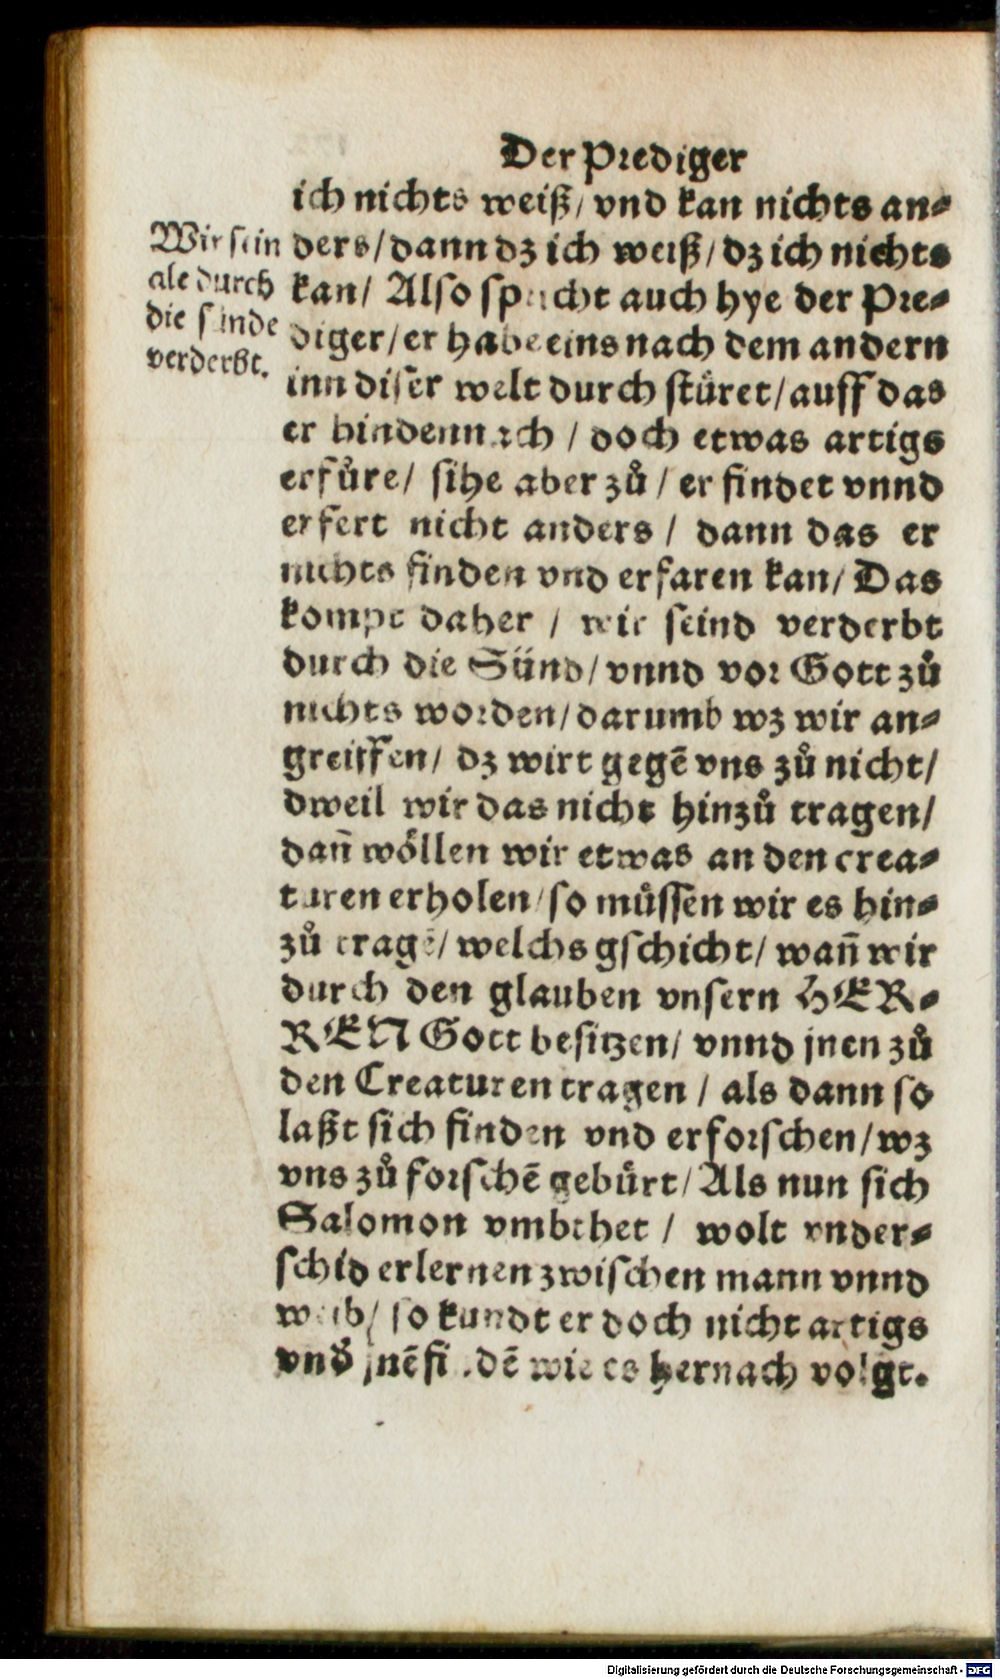 Der Prediger
ich nichts weiß/ vnd kan nichts an-
ders/ dann dz ich weiß/ dz ich nichts
kan/ Also spricht auch hye der Pre-
diger/ er habe eins nach dem andern
inn diser welt durch stüret/ auff das
er hindennach / doch etwas artigs
erfůre/ sihe aber zů / er findet vnnd
erfert nicht anders / dann das er
nichts finden vnd erfaren kan/ Das
kompt daher / wir seind verderbt
durch die Sünd/ vnnd vor Gott zů
nichts worden/ darumb wz wir an-
greiffen/ dz wirt gegē vns zů nicht/
dweil wir das nicht hinzů tragen/
dañ wöllen wir etwas an den crea-
turen erholen/ so müssen wir es hin-
zů tragē/ welchs gschicht/ wañ wir
durch den glauben vnsern HER-
REN Gott besitzen/ vnnd jnen zů
den Creaturen tragen / als dann so
laßt sich finden vnd erforschen/ wz
vns zů forschē gebürt/ Als nun sich
Salomon vmbthet / wolt vnder-
schid erlernen zwischen mann vnnd
weib/ so kundt er doch nicht artigs
vnd' jnē findē wie es hernach volgt.
Wir sein
ale durch
die sünde
verderbt.
Digitalisierung gefördert durch die Deutsche Forschungsgemeinschaft - DFG